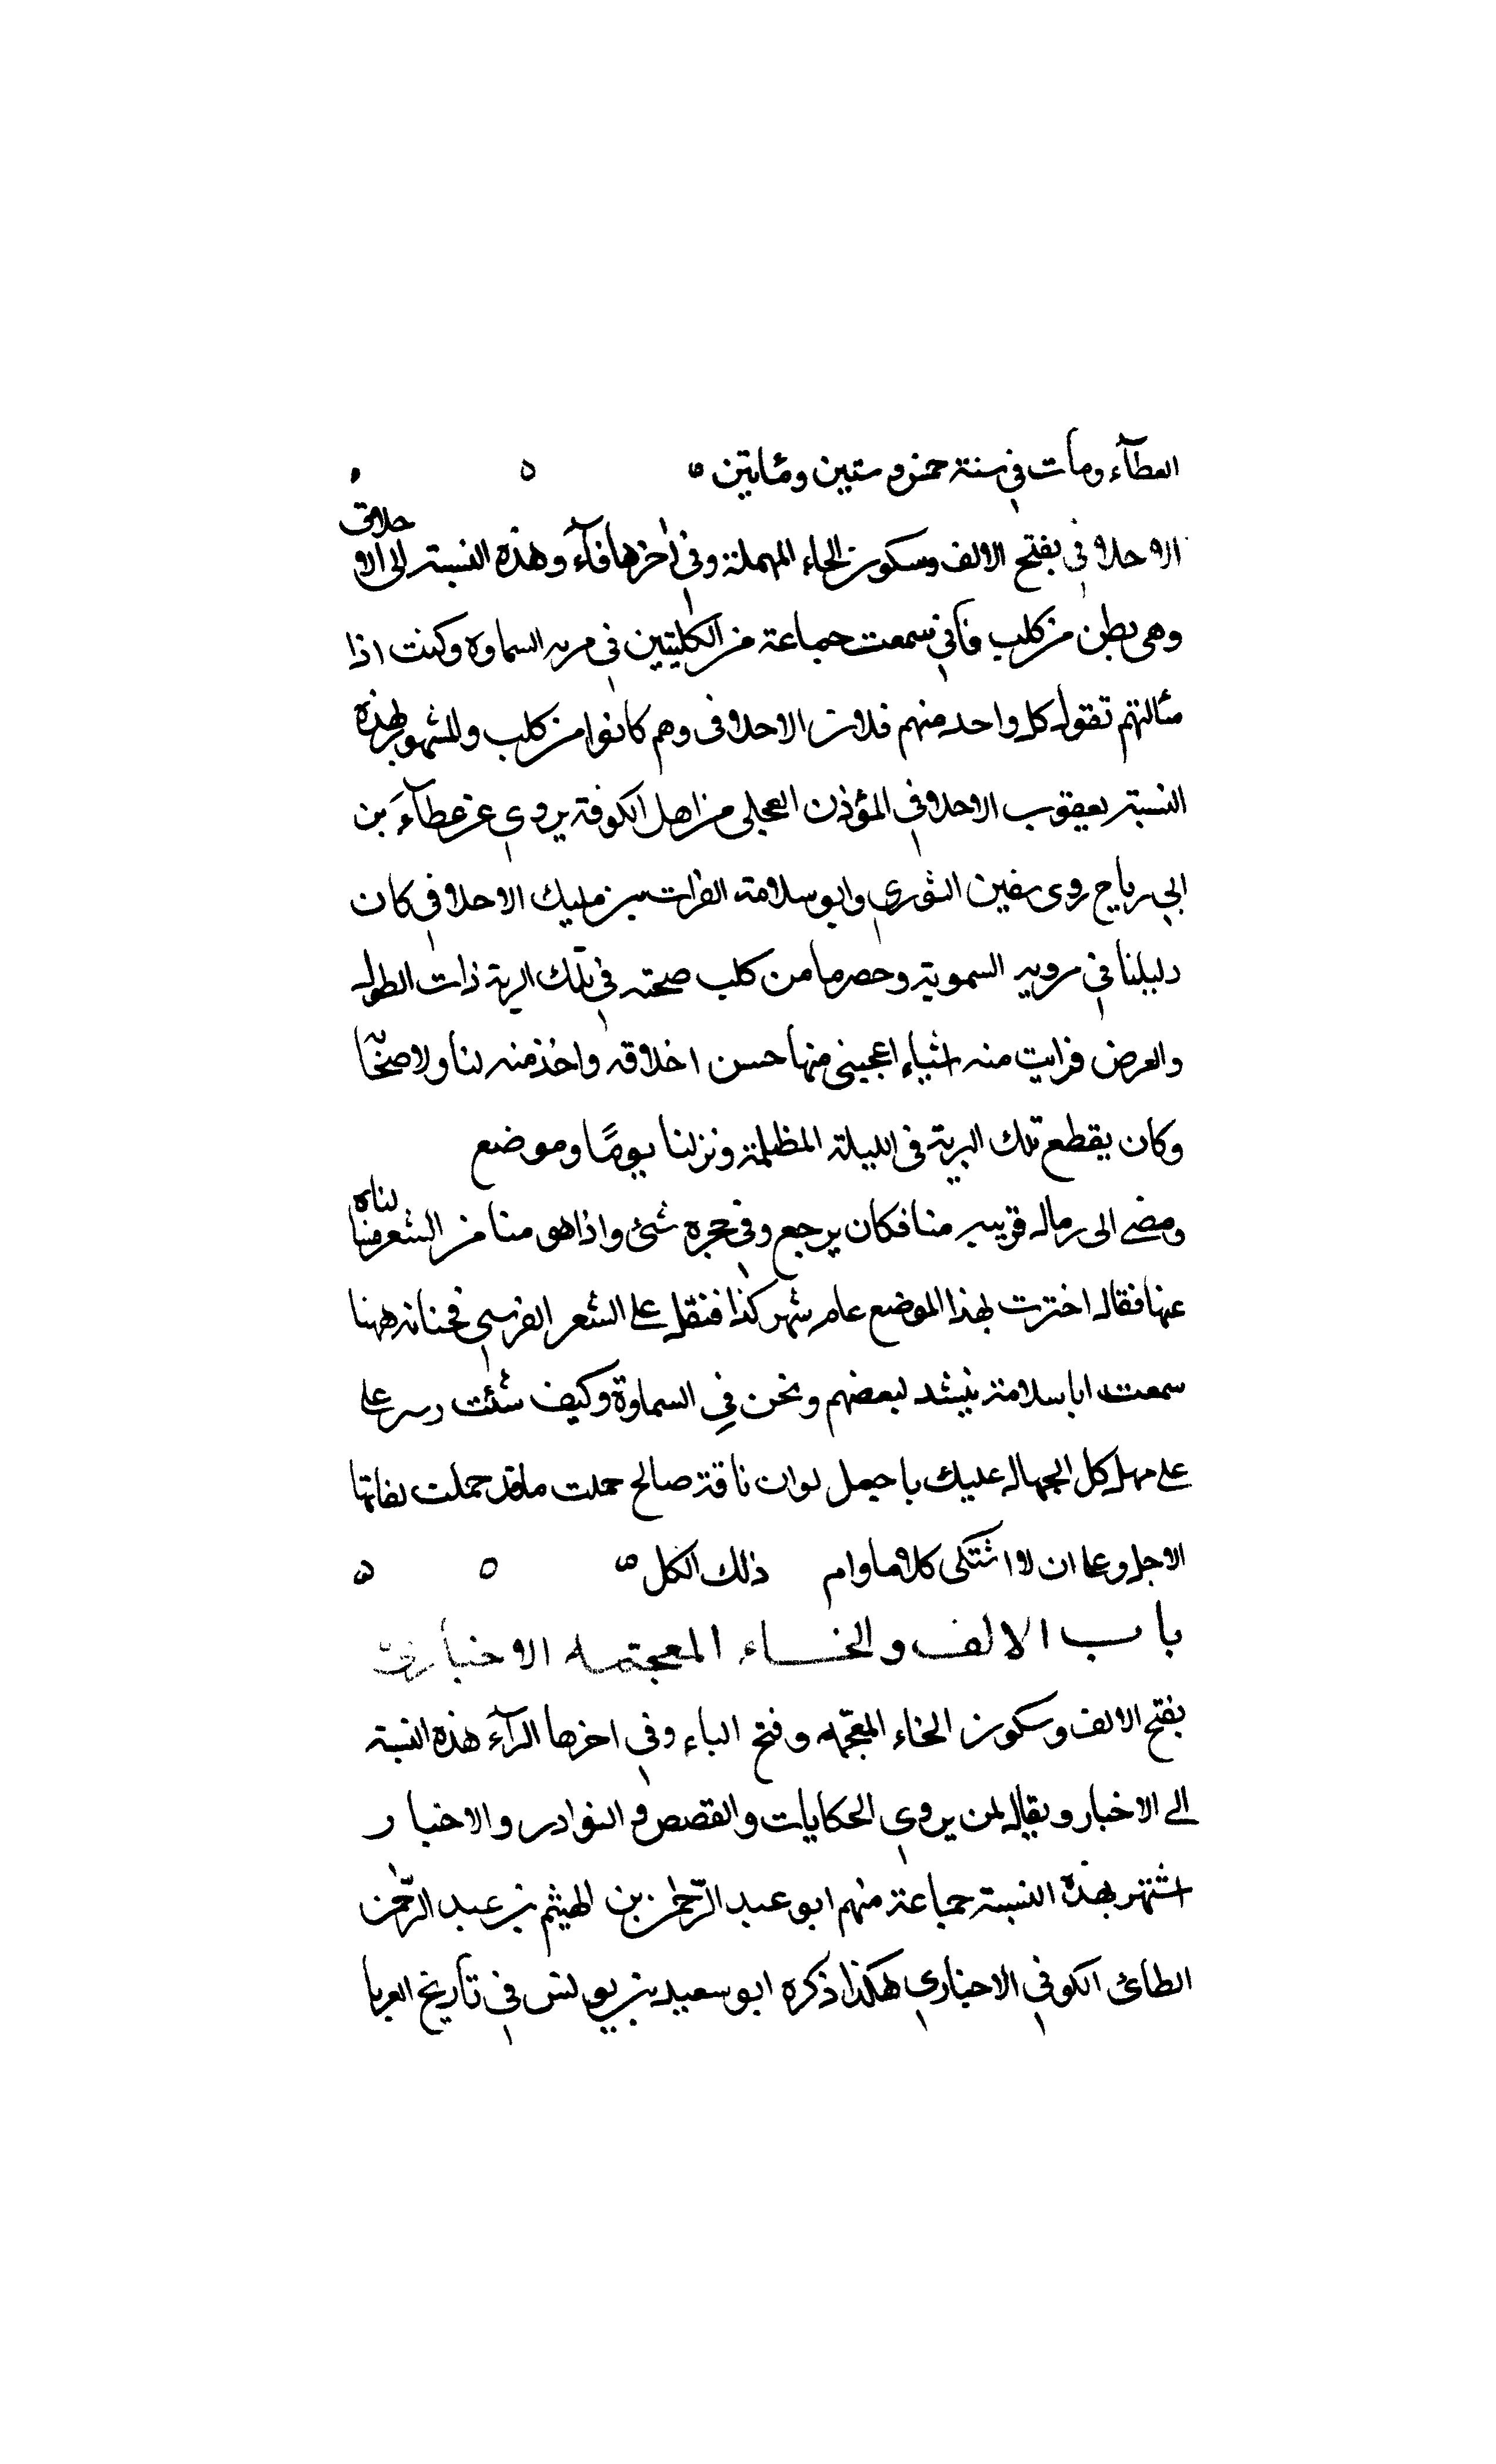 العطآء ومات في سنة خمس وستين ومئاتين
الاحلافي بفتح الالف وسكون الحاء المهملة وفي اخرها فآء وهذه النسبة الى الاحلاف
وهى بطن من كلب فاني سمعت جماعة من الكلبيين في بريه السماوة وكنت اذا
سألتهم تقول كل واحد منهم فلان الاحلافى وهم كانوا من كلب والمشهور بهذه
النسبة يعقوب الاحلافي المؤذن العجلى من اهل الكوفة يروي عن عطآء بن
ابي رباح روى سفين الثوري وابو سلامة الفرات بن مليك الاحلافي كان
دليلنا في السموية من كلب صحبته في تلك البرية ذات الطول
والعرض فرايت منه اشياء اعجبنى منها حسن اخلاقه واخذ منه لنا ولاصحابنا
وكان يقطع تلك البرية فى الليلة المظلمة ونزلنا يومًا وموضع
ومضى الى رمال قريب منا فكان يرجع وفي حجره شئ واذا هو منا من الشعر فسالناه
عنها فقال اخترت بهذا الموضع عام شهر كذا فنقل على الشعر الفرسي فخباته ههنا
سمعت ابا سلامة ينشد لبعضهم ونحن في السماوة وكيف شئت على
على مهل كل الجمال عليك يا جمل لوان ناقة صالح حملت ما قد حملت لفاتها
الاجل وعا ان لا اشتكى كلاما وام ذلك الكل
باب الالف والخاء المعجمه الاخبارى
بفتح الالف وسكون الخاء المعجمه وفتح الباء وفي اخرها الرآء هذه النسبة
الى الاخبار ويقال لمن يروي الحكايات والقصص و النوادر والاخبار
اشتهر بهذه النسبة جماعة منهم ابو عبد الرحمن بن الهيثم بن عبد الرحمن
الطائ الكوفي الاخباري هكذا ذكره ابو سعيد بن يونس في تأريخ الغربا